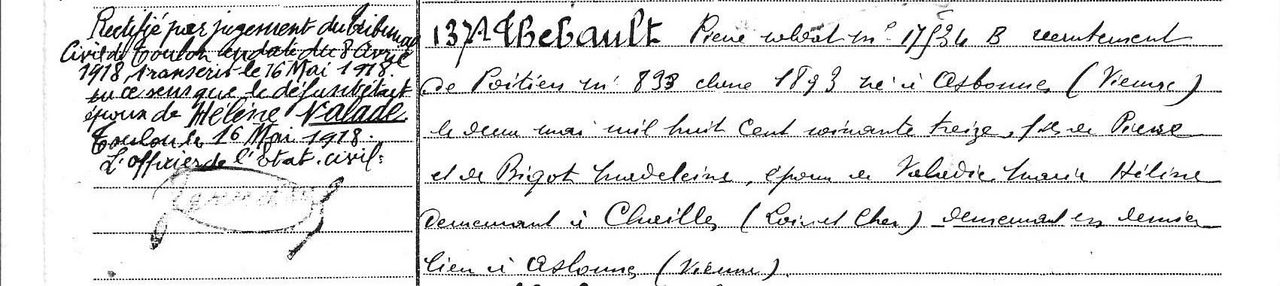 Rectifié par jugement du tribunal
Civil de Toulon en date du 8 Avril
1918, transcrit le 16 Mai 1918.
en ce sens que le défunt était
époux de Hélène Valade
Toulon le 16 Mai 1918.
L'officier de l'Etat-civil:
137 Thebault Pierre soldat m^e 17534 B recrutement
de Poitiers m^e 893 classe 1893 né à Aslonnes (Vienne)
le deux mai mil huit cent soixante treize, fils de Pierre
et de Bigot Madeleine, époux de Valadie Marie Hélène
demeurant à Cheilles (Loir et Cher) demeurant en dernier
lieu à Aslonnes (Vienne).